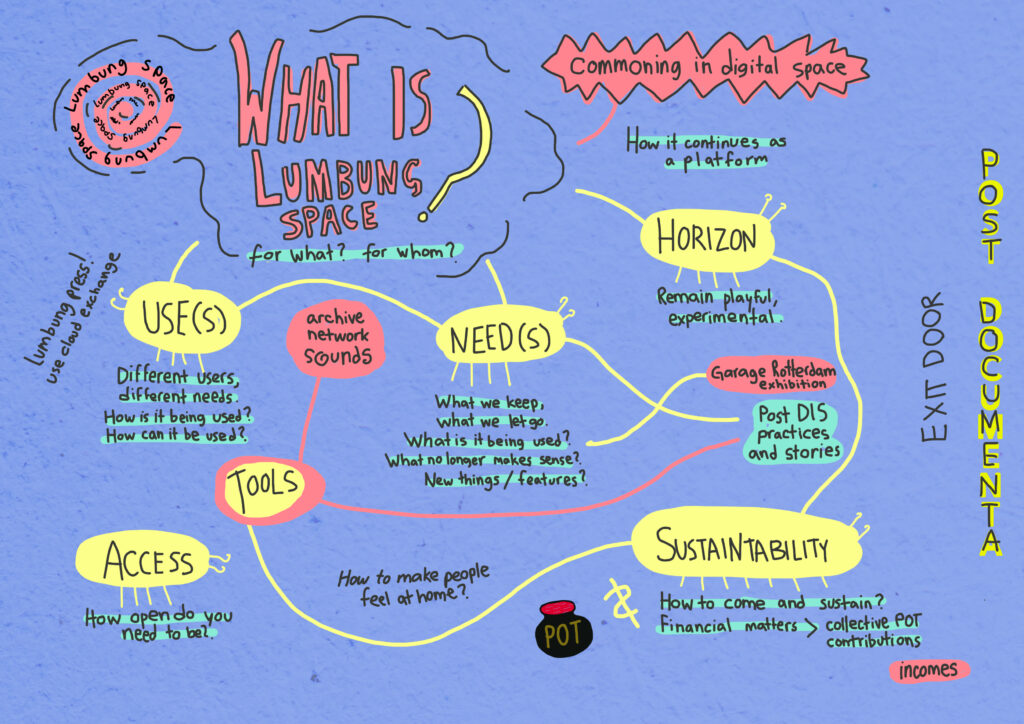 Lumbung space
Lumbung space
Lumbung space
Lumbung space
WHAT IS
LUMBUNG
SPACE ?
for what? for whom?
Commoning in digital space
How it continues as
a platform
HORIZON
Remain playful,
experimental.
POST DOCUMENTA
EXIT DOOR
Lumbung press!
use cloud exchange
USE(S)
Different users,
different needs.
How is it being used?
How can it be used?
archive
network
sounds
NEED(S)
What we keep,
what we let go.
What is it being used?
What no longer makes sense?
New things/features?
Garage Rotterdam
exhibition
Post D15
practices
and stories
TOOLS
ACCESS
How open do you
need to be?
How to make people
feel at home?
POT
SUSTAINTABILITY
How to come and sustain?
Financial matters > collective POT
contributions
incomes